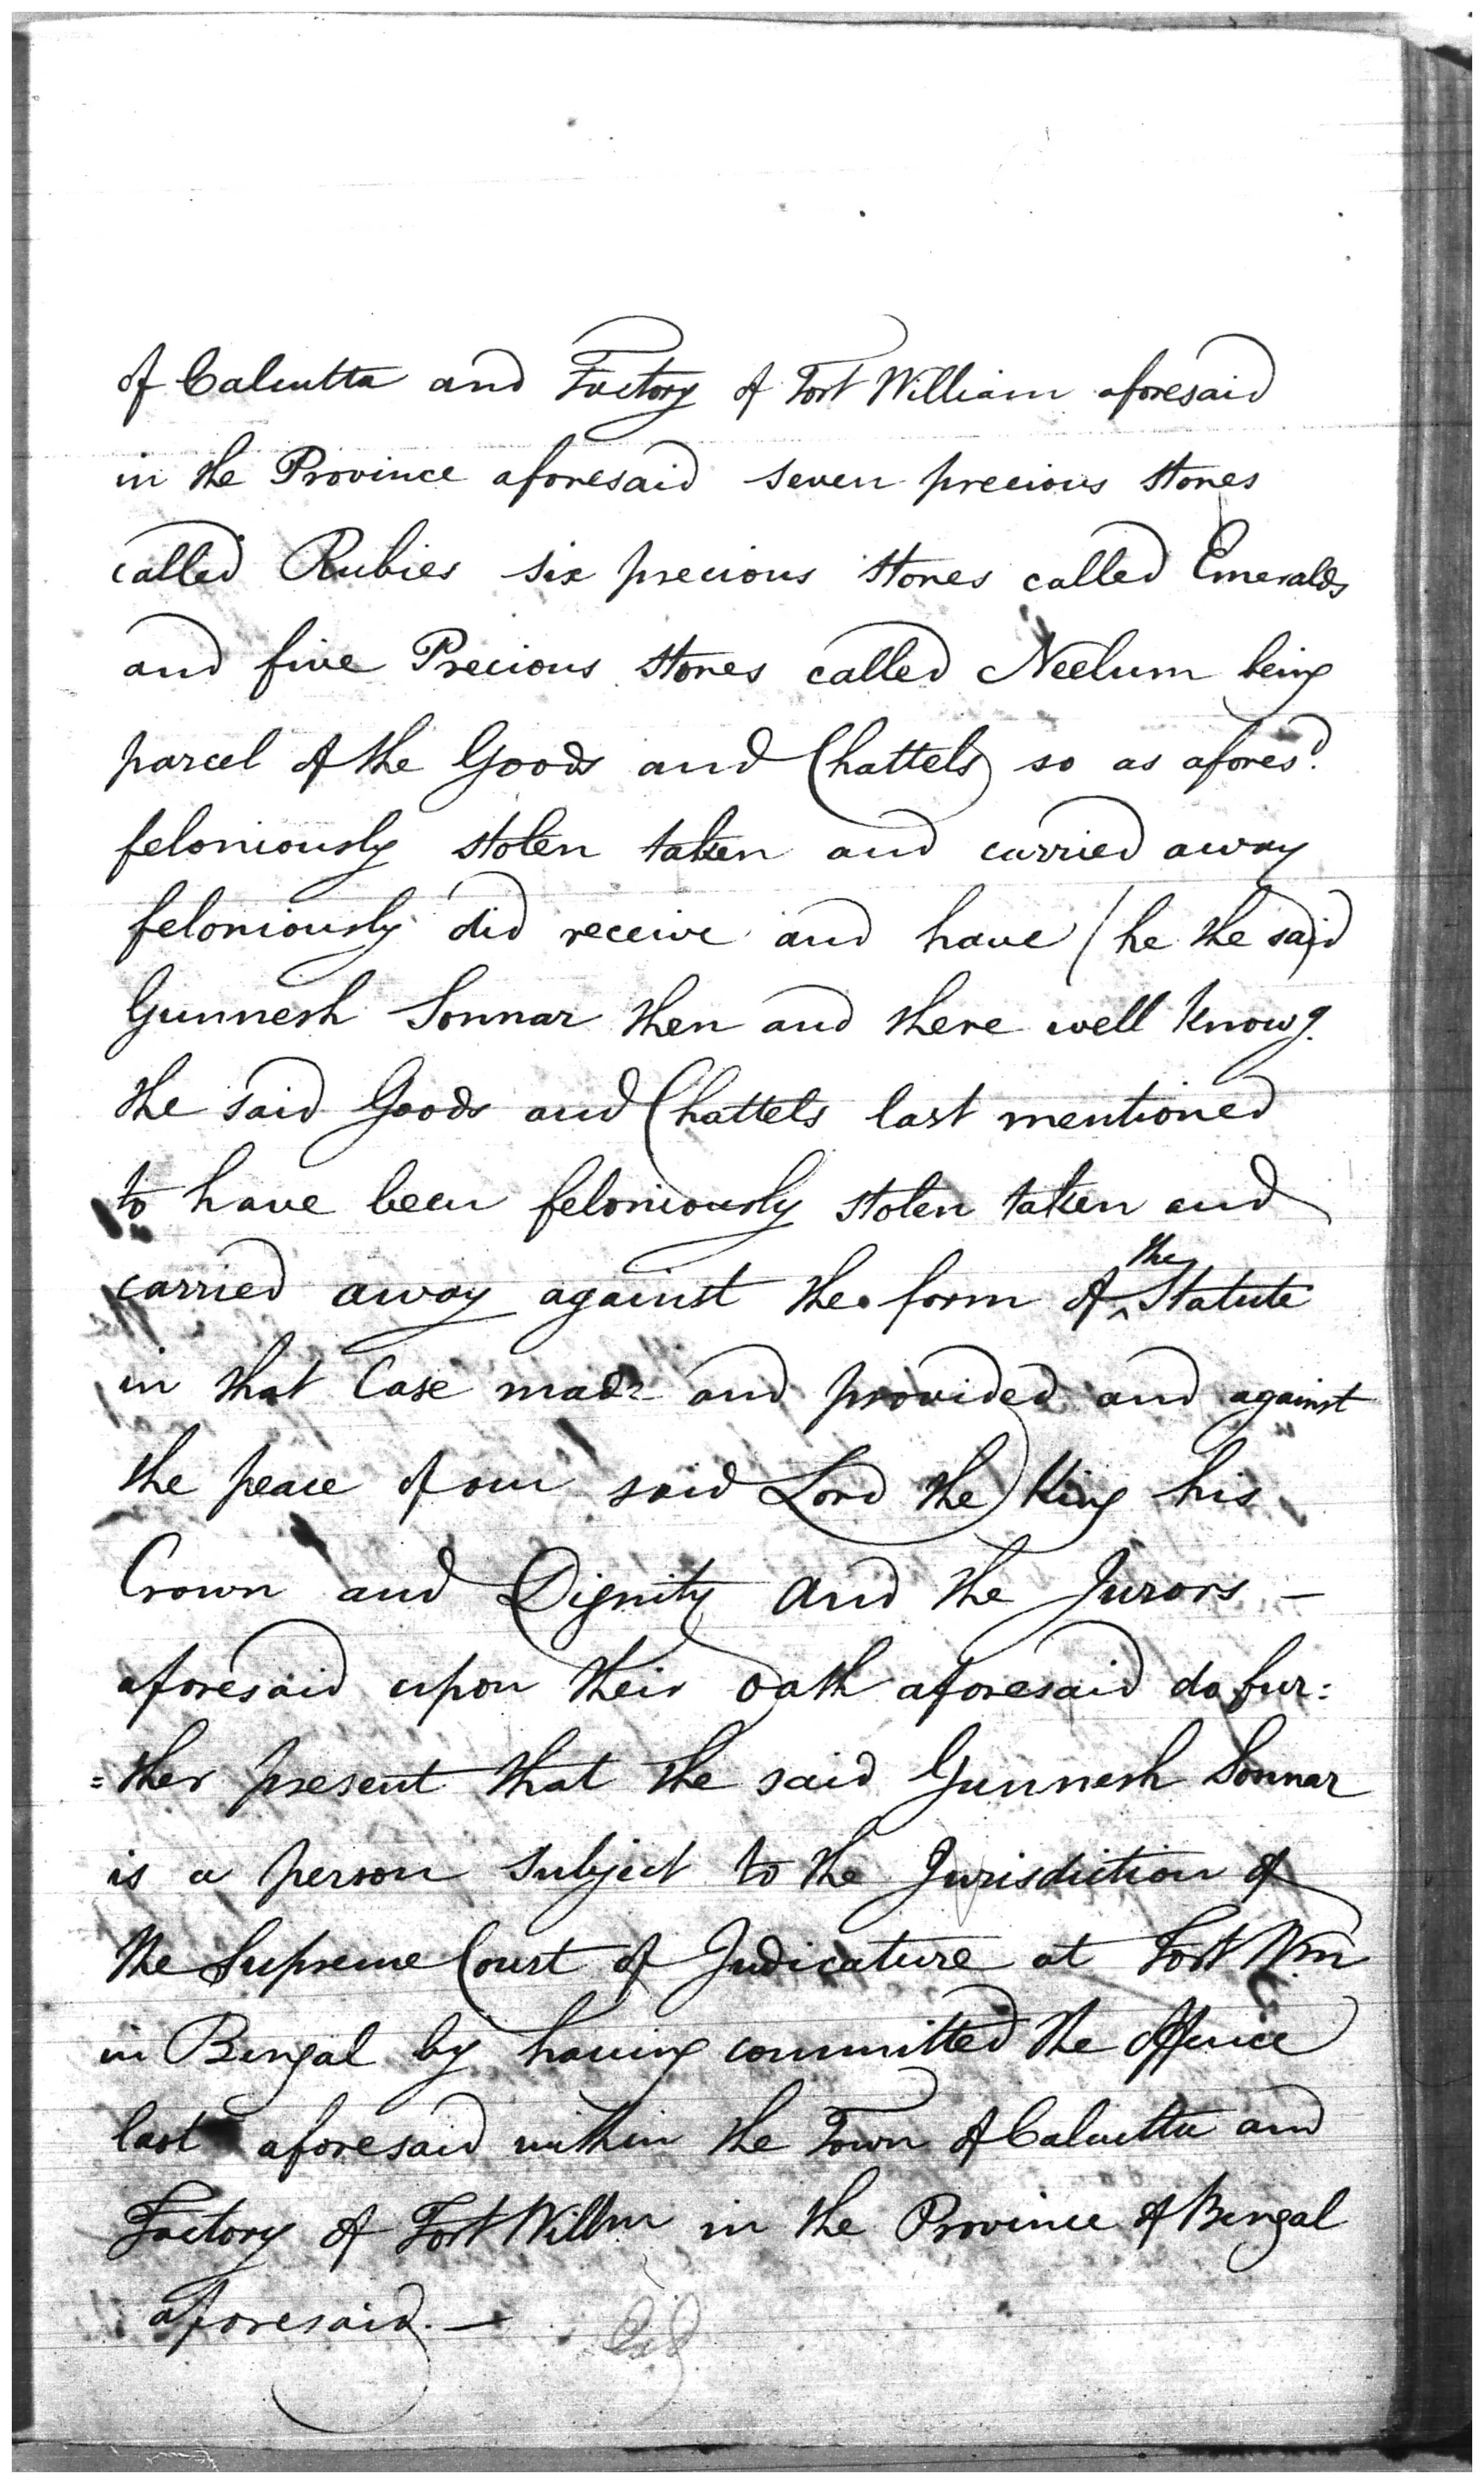 of Calcutta and Factory of Fort William aforesaid
in the Province aforesaid seven precious stones
called Rubies six precious stones called Emeralds
and five Precious stones called Neelum being
parcel of the Goods and Chattels so as afores.d
feloniously stolen taken and carried away
feloniously did receive and have /he the said
Gunnesh Sonnar then and there well knowg.
the said Goods and Chattels last mentioned
to have been feloniously stolen taken and
carried away against the form of ^the Statute
in that Case made and provided and against
the peace of our said Lord the King his
Crown and Dignity And the Jurors –
aforesaid upon their Oath aforesaid do fur:
=ther present that the said Gunnesh Sonnar
is a person subject to the Jurisdiction of
the Supreme Court of Judicature at Fort Wm
in Bengal by having committed the Offence
last aforesaid within the Town of Calcutta and
Factory of Fort Willm in the Province of Bengal
aforesaid. –